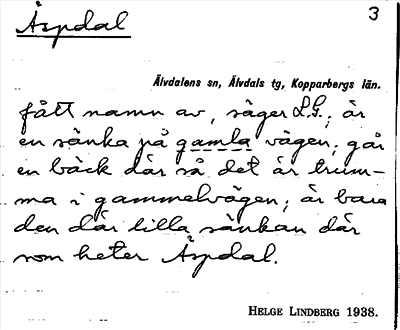 Åspdal
3
Älvdalens sn, Älvdals tg, Kopparbergs län.
fått namn av, säger L.G., är
en sänka på gamla vägen, går
en bäck där så det är trum-
ma i gammelvägen, är bara
den där lilla sänkan där
som heter Åspdal.
HELGE LINDBERG 1938.